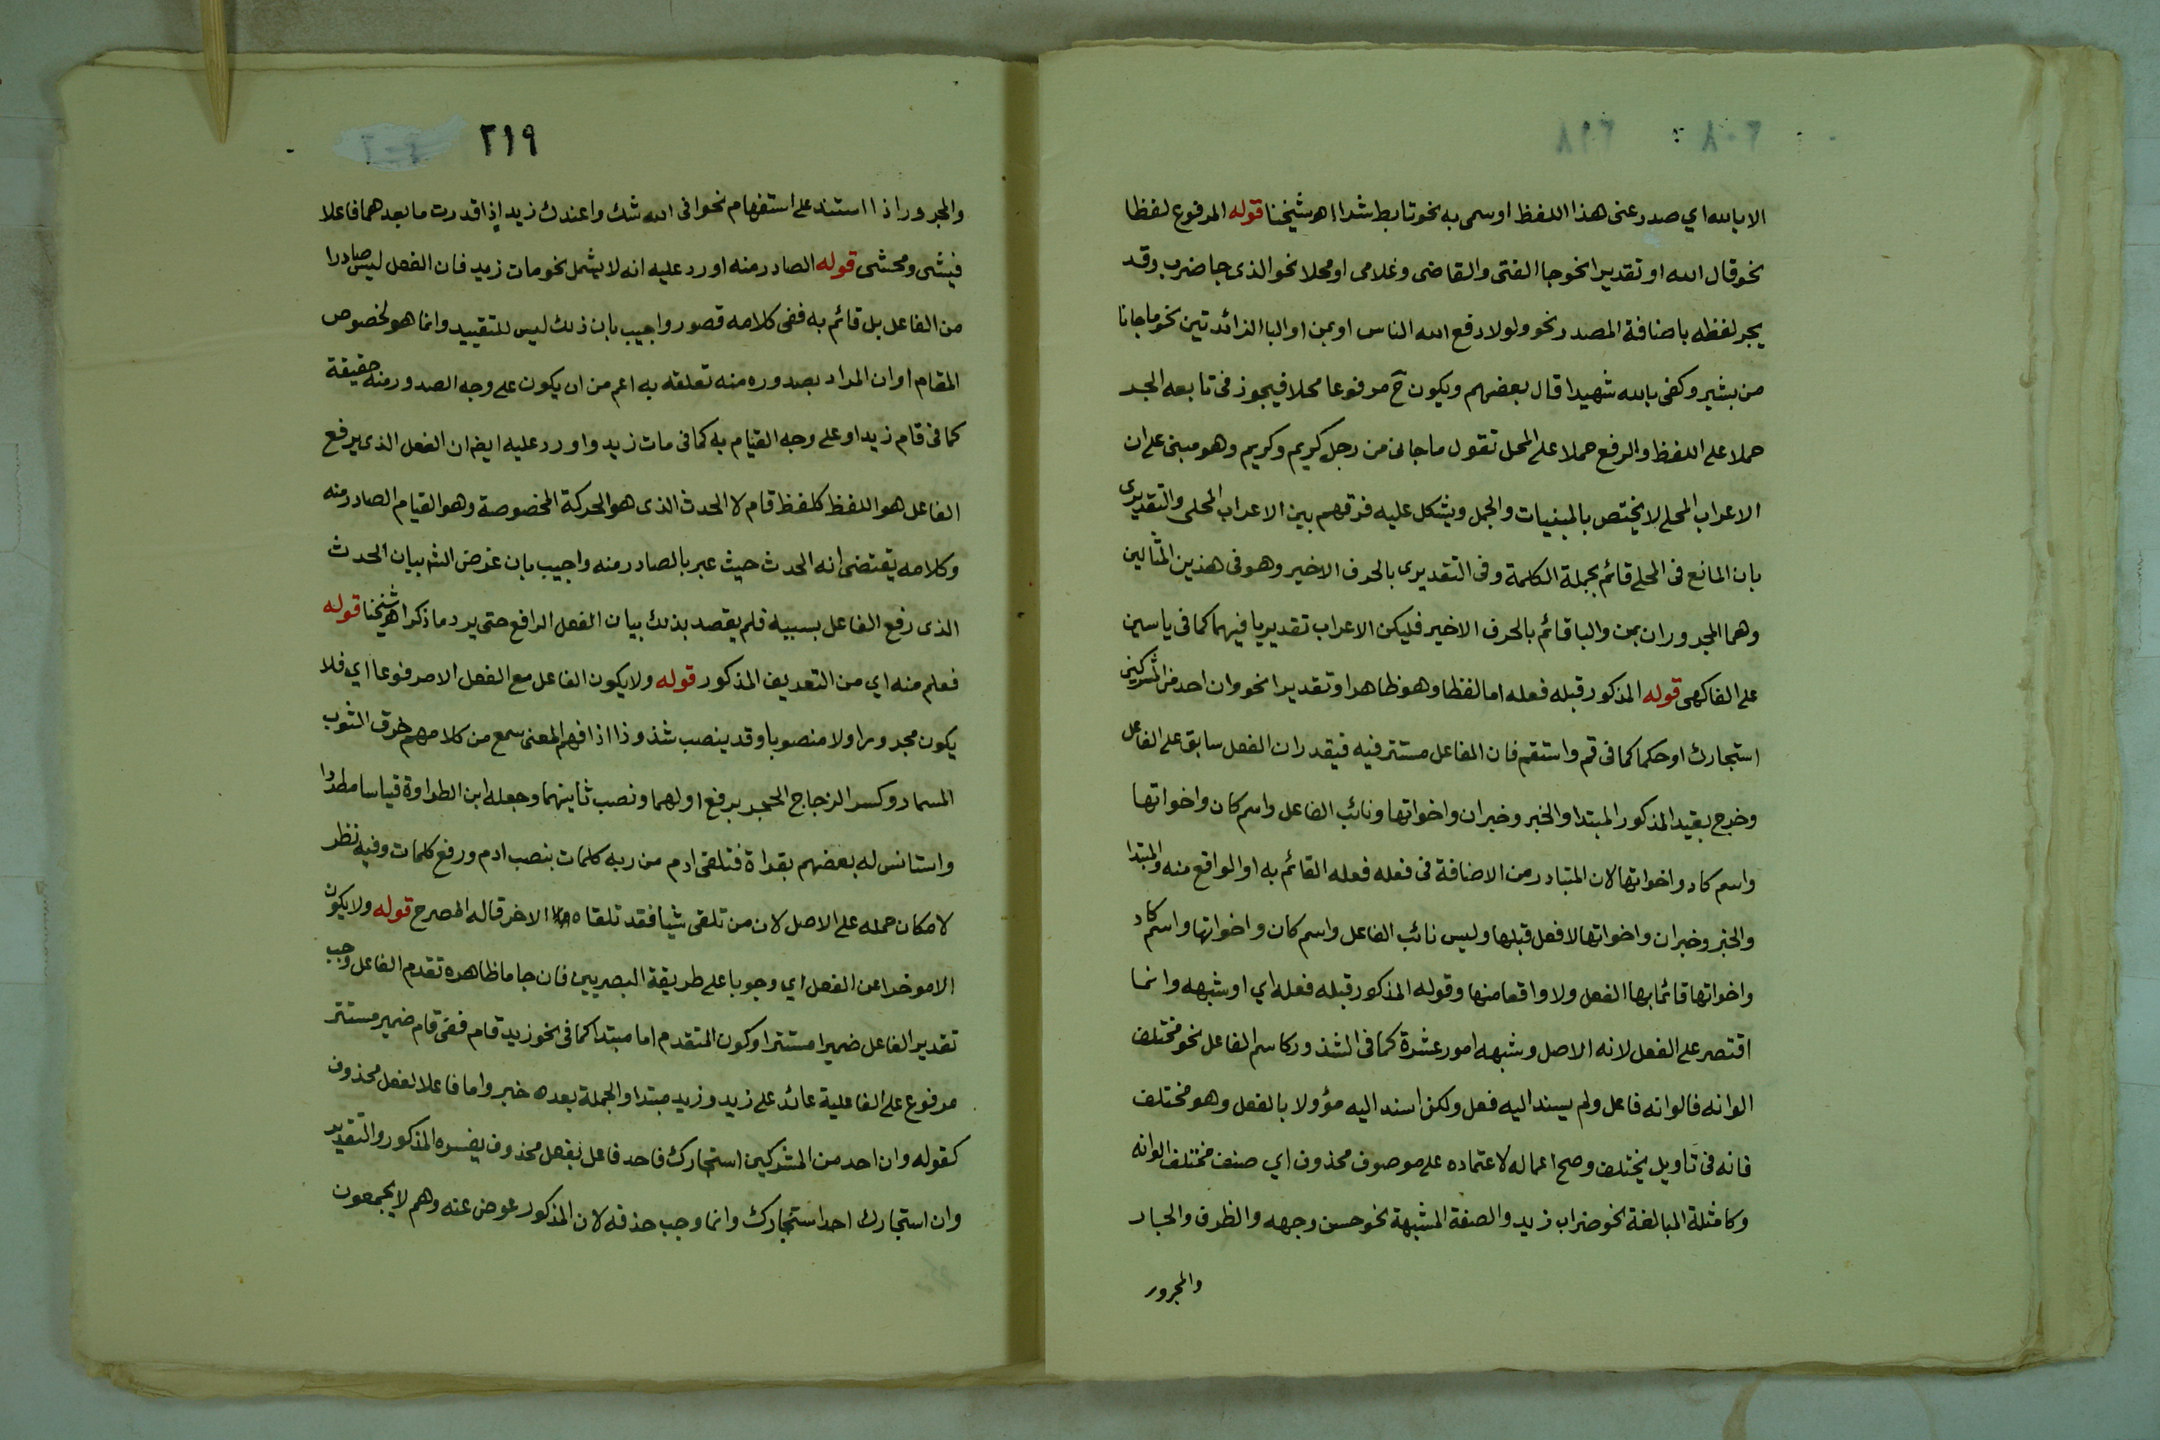 الا بالله اي صدر عنى هذا اللفظ او سمى به نحو تابط شرا اهـ شيخنا قوله المرفوع لفظا
نحو قال الله او تقديرا نحو جا الفتى والقاضى وغلامى او محلا نحو الذى جا ضرب وقد
يجر لفظه باضافة المصدر نحو ولولا دفع الله الناس او بمن او البا الزائدتين نحو ما جانا
من بشير وكفى بالله شهيدا قال بعضهم ويكون ح مرفوعا محلا فيجوز فى تابعه الجر
حملا على اللفظ والرفع حملا على المحل تقول ما جانى من رجل كريم وكريم وهو مبنى على ان
الاعراب المحلى لا يختص بالمبنيات والجمل ويشكل عليه فرقهم بين الاعراب المحلى والتقديرى
بان المانع فى المحلى قائم بجملة الكلمة وفى التقديرى بالحرف الاخير وهو فى هذين المثالين
وهما المجروران بمن والبا قائم بالحرف الاخير فليكن الاعراب تقديريا فيهما كما فى ياسين
على الفاكهى قوله المذكور قبله فعله اما لفظا وهو ظاهر او تقديرا نحو وان احد من المشركين
استجارك او حكما كما فى قم واستقم فان الفاعل مستتر فيه فيقدر ان الفعل سابق على الفاعل
وخرج بقيد المذكور المبتدا والخبر وخبر ان واخواتها ونائب الفاعل واسم كان واخواتها
واسم كاد واخواتها لان المتبادر من الاضافة فى فعله فعله القائم به او الواقع منه والمبتدا
والخبر وخبر ان واخواتها لا فعل قبلها وليس نائب الفاعل واسم كان واخواتها واسم كاد
واخواتها قائما بها الفعل ولا واقعا منها وقوله المذكور قبله فعله اي او شبهه وانما
اقتصر على الفعل لانه الاصل وشبهه امور عشرة كما فى الشذور كاسم الفاعل نحو مختلف
الوانه فالوانه فاعل ولم يسند اليه فعل ولكن اسند اليه مؤولا بالفعل وهو مختلف
فانه فى تاويل يختلف وصح اعماله لاعتماده على موصوف محذوف اي صنف مختلف الوانه
وكامثلة المبالغة نحو ضراب زيد والصفة المشبهة نحو حسن وجهه والظرف والجار
والمجرور
٢١٩
والمجرور اذا استند على استفهام نحو افى الله شك واعندك زيد اذا قدرت ما بعدهما فاعلا
فيشى ومحشى قوله الصادر منه اورد عليه انه لا يشمل نحو مات زيد فان الفعل ليس صادرا
من الفاعل بل قائم به ففى كلامه قصور واجيب بان ذلك ليس للتقييد وانما هو لخصوص
المقام او ان المراد بصدوره منه تعلقه به اعم من ان يكون على وجه الصدور منه حقيقة
كما فى قام زيد او على وجه القيام به كما فى مات زيد واورد عليه ايض ان الفعل الذى يرفع
الفاعل هو اللفظ كلفظ قام لا الحدث الذى هو الحركة المخصوصة وهو القيام الصادر منه
وكلامه يقتضى انه الحدث حيث عبر بالصادر منه واجيب بان غرض الشـ بيان الحدث
الذى رفع الفاعل بسببه فلم يقصد بذلك بيان الفعل الرافع حتى يرد ما ذكر اهـ شيخنا قوله
فعلم منه اي من التعريف المذكور قوله ولا يكون الفاعل مع الفعل الا مرفوعا اي فلا
يكون مجرورا ولا منصوبا وقد ينصب شذوذا اذا فهم المعنى سمع من كلامهم خرق الثوب
المسمار وكسر الزجاج الحجر برفع اولهما ونصب ثانيهما وجعله ابن الطراوة قياسا مطردا
واستانس له بعضهم بقراة فتلقى ادم من ربه كلمات بنصب ادم ورفع كلمات وفيه نظر
لامكان حمله على الاصل لان من تلقى شيا فقد تلقاه الاخر قاله المصرح قوله ولا يكون
الا موخرا عن الفعل اي وجوبا على طريقة البصريين فان جا ما ظاهره تقدم الفاعل وجب
تقدير الفاعل ضميرا مستترا وكون المتقدم اما مبتدا كما فى نحو زيد قام ففى قام ضمير مستتر
مرفوع على الفاعلية عائد على زيد وزيد مبتدا والجملة بعده خبر واما فاعلا لفعل محذوف
كقوله وان احد من المشركين استجارك فاحد فاعل بفعل محذوف يفسره المذكور والتقدير
وان استجارك احد استجارك وانما وجب حذفه لان المذكور عوض عنه وهم لا يجمعون